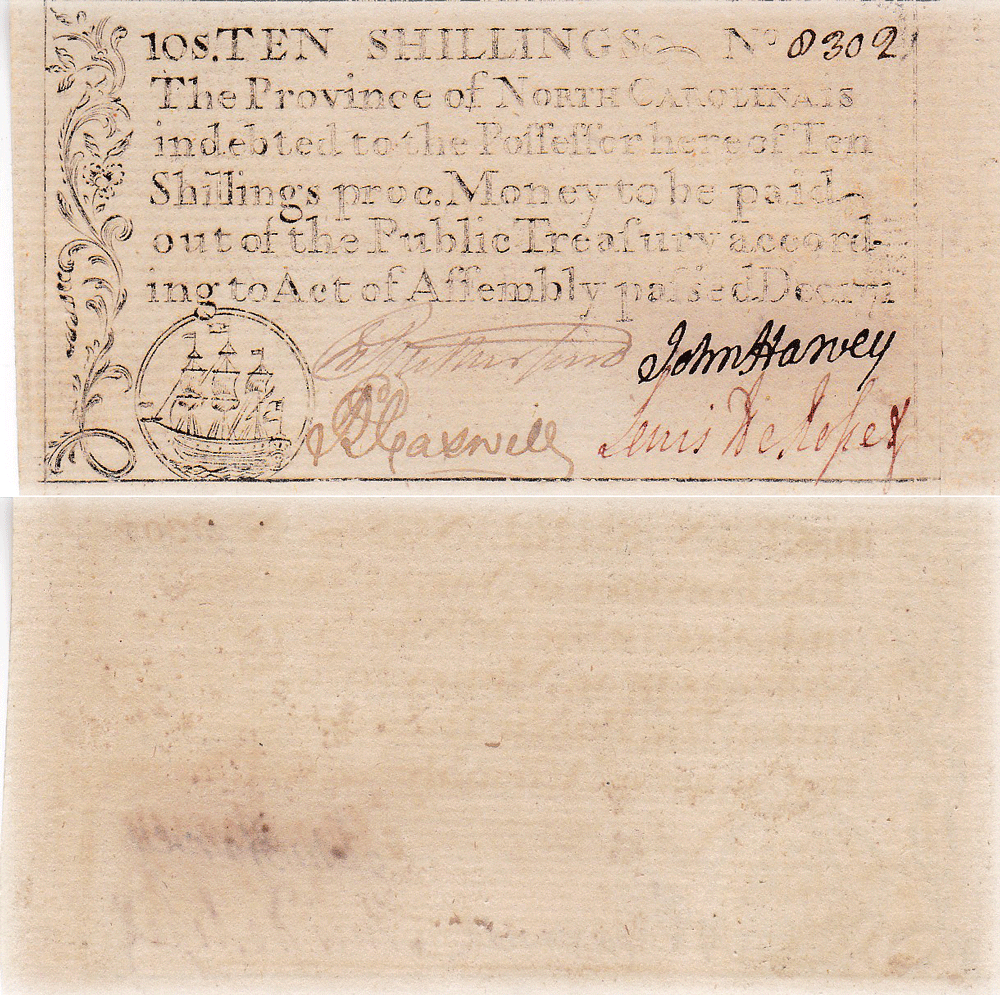 10S. TEN SHILLINGS Nº 8302
The Province of NORTH CAROLINA is
indebted to the Poſſeſſor hereof Ten
Shillings proc. Money to be paid
out of the Public Treaſury accord-
ing to Act of Aſſembly paſsed Decr 1771
John Harvey
Rd Caswell Lewis De Roſſet